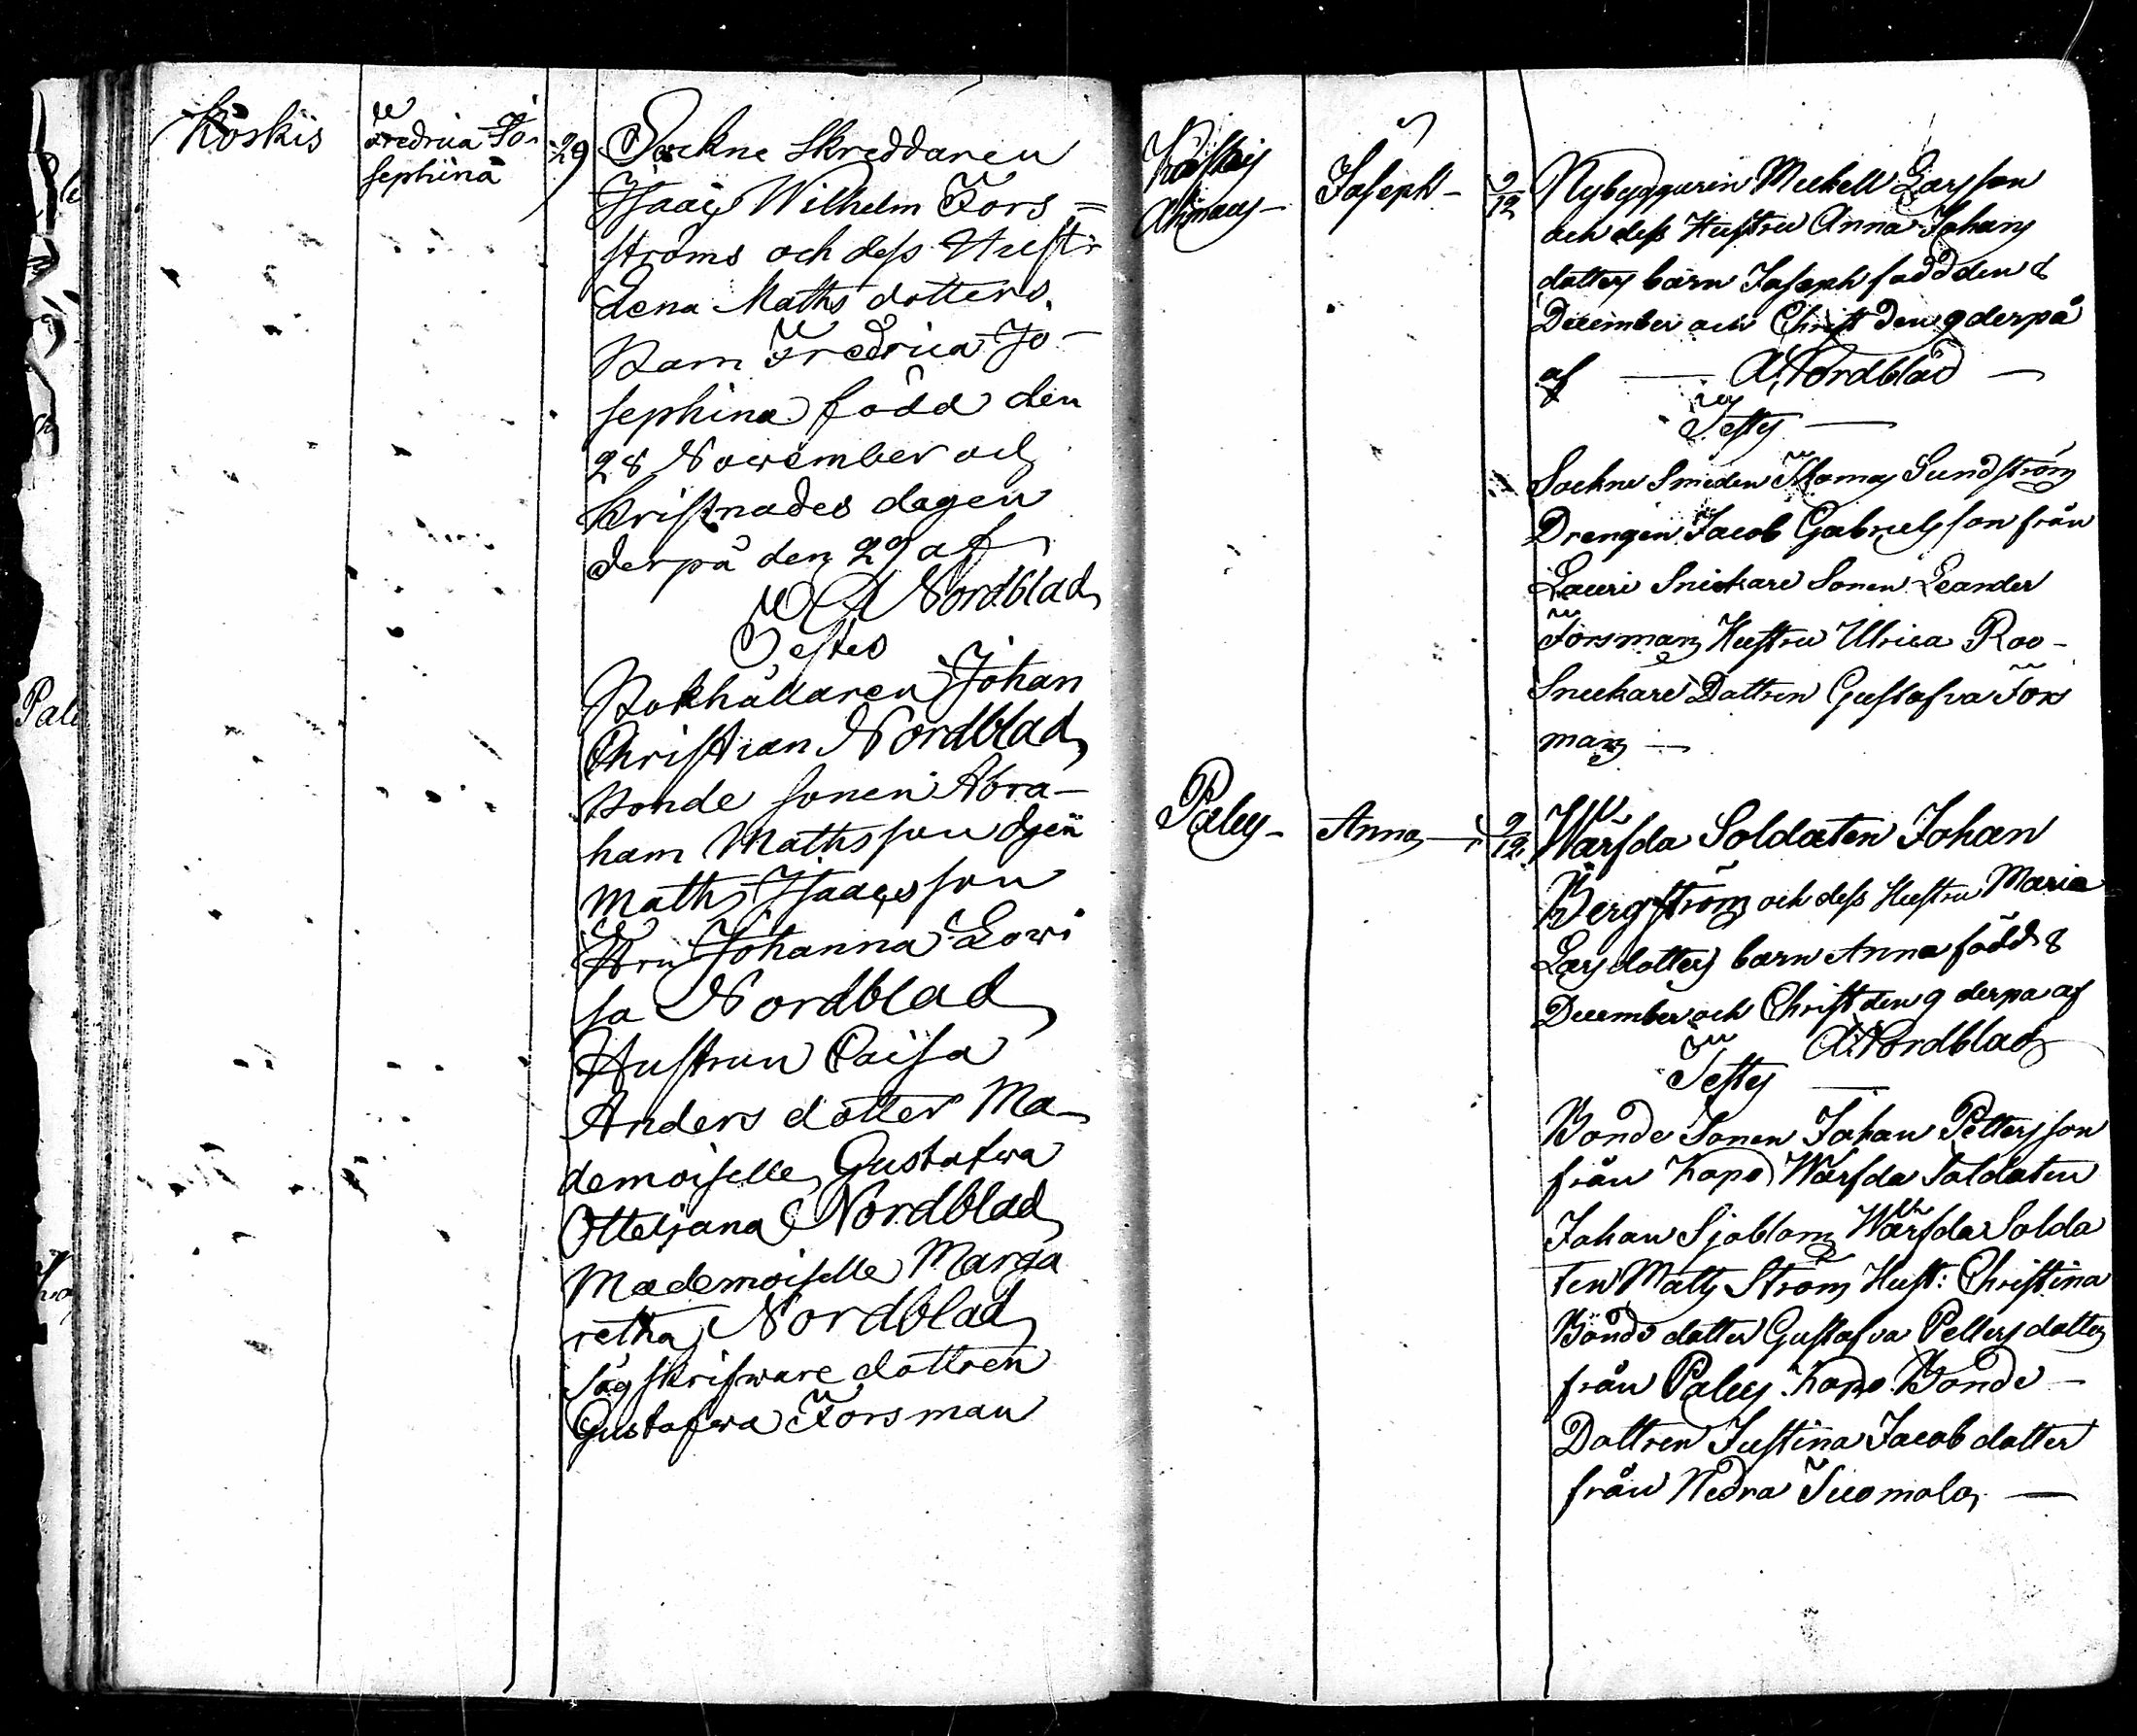 Koskis
Fredrica Jo-
sephina
29
Sockne Skreddaren
Isaac Wilhelm Fors=
ströms och dess Hustr
Lena Maths dotters
Barn Fredrica Jo-
sephina född den
28 November och
Kristnades dagen
derpå den 29 af
A Nordblad
Testes
Bokhållaren Johan
Christian Nordblad
Bonde sonen Abra-
ham Mathsson
Maths Isaacsson
Fru Johanna Lowi
sa Nordblad
Hustrun Caisa
Anders dotter Ma
demoiselle Gustafwa
Otteliana Nordblad
Mademoiselle Marga
retha Nordblad
Såg skrifware dottren
Gustafwa Forsman
Koskis
Allmans-
Joseph-
9/12
Nybyggarin Mickell Larsson
och dess Hustru Anna Johans
dotters barn Joseph född den 8
December och Christ den 9 derpå
af — A Nordblad —
Testes —
Sockne Smeden Thomas Sundström
Drengen Jacob Gabrielsson från
Lauri Snickare Sonen Leander
Forsman Hustru Ulrica Roo-
Snickare Dottren Gustafva Fors
man —
Palus-
Anna —
9/12
Wärfda Soldaten Johan
Bergström och dess Hustru Maria
Larsdotters barn Anna född 8
December och Christ den 9 derpå af
A Nordblad
Testes —
Bonde Sonen Johan Pettersson
från Kapo Wärfda Soldaten
Johan Sjöblom Wärfda Solda
ten Maths Ström Hust: Christina
Bonde dotter Gustafva Petters dotter
från Palus Kapo Bonde-
Dottren Justina Jacob dotter
från Nedra Tuomola —